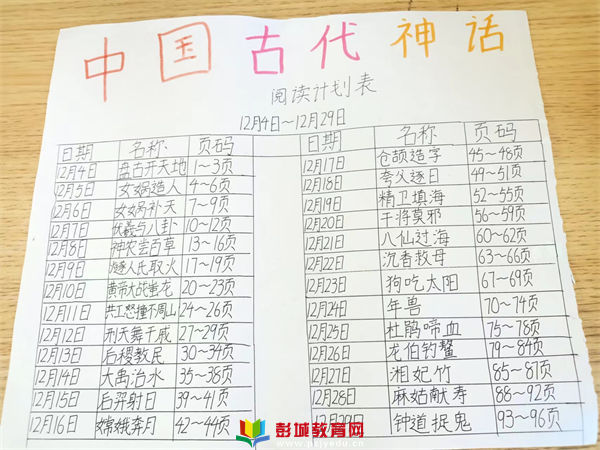 中国古代神话
阅读计划表
12月4日~12月29日
日期 名称 页码
12月4日 盘古开天地 1~3页
12月5日 女娲造人 4~6页
12月6日 女娲补天 7~9页
12月7日 伏羲与八卦 10~12页
12月8日 神农尝百草 13~16页
12月9日 燧人氏取火 17~19页
12月10日 黄帝大战蚩龙 20~23页
12月11日 共工怒撞不周山 24~26页
12月12日 刑天舞干戚 27~29页
12月13日 后稷教民 30~34页
12月14日 大禹治水 35~38页
12月15日 后羿射日 39~41页
12月16日 嫦娥奔月 42~44页
日期 名称 页码
12月17日 仓颉造字 45~48页
12月18日 夸父逐日 49~51页
12月19日 精卫填海 52~55页
12月20日 干将莫邪 56~59页
12月21日 八仙过海 60~62页
12月22日 沉香救母 63~66页
12月23日 狗吃太阳 67~69页
12月24日 年兽 70~74页
12月25日 杜鹃啼血 75~78页
12月26日 龙伯钓鳌 79~84页
12月27日 湘妃竹 85~87页
12月28日 麻姑献寿 88~92页
12月29日 钟道捉鬼 93~96页
彭城教育网